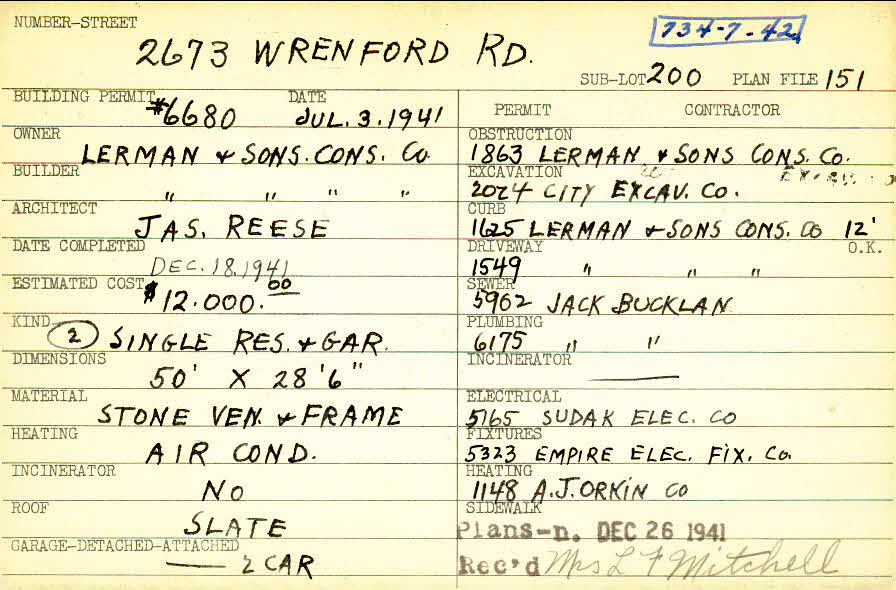 NUMBER-STREET
2673 WRENFORD RD.
734-7-42
SUB-LOT 200 PLAN FILE 151
BUILDING PERMIT #6680 DATE JUL. 3. 1941
OWNER
LERMAN & SONS. CONS. Co
BUILDER
" " " "
ARCHITECT
JAS. REESE
DATE COMPLETED
DEC. 18. 1941
ESTIMATED COST
$12.000.00
KIND
2 SINGLE RES. & GAR.
DIMENSIONS
50' X 28'6"
MATERIAL
STONE VEN. & FRAME
HEATING
AIR COND.
INCINERATOR
NO
ROOF
SLATE
GARAGE-DETACHED-ATTACHED
— 2 CAR
PERMIT CONTRACTOR
OBSTRUCTION
1863 LERMAN & SONS CONS. Co.
EXCAVATION
2024 CITY EXCAV. Co.
CURB
1625 LERMAN & SONS CONS. CO 12'
DRIVEWAY O.K.
1549 " " "
SEWER
5962 JACK BUCKLAN
PLUMBING
6175 " "
INCINERATOR
—
ELECTRICAL
5765 SUDAK ELEC. CO
FIXTURES
5323 EMPIRE ELEC. FIX. Co.
HEATING
1148 A.J. ORKIN CO
SIDEWALK
Plans-n. DEC 26 1941
Rec'd Mrs L F Mitchell